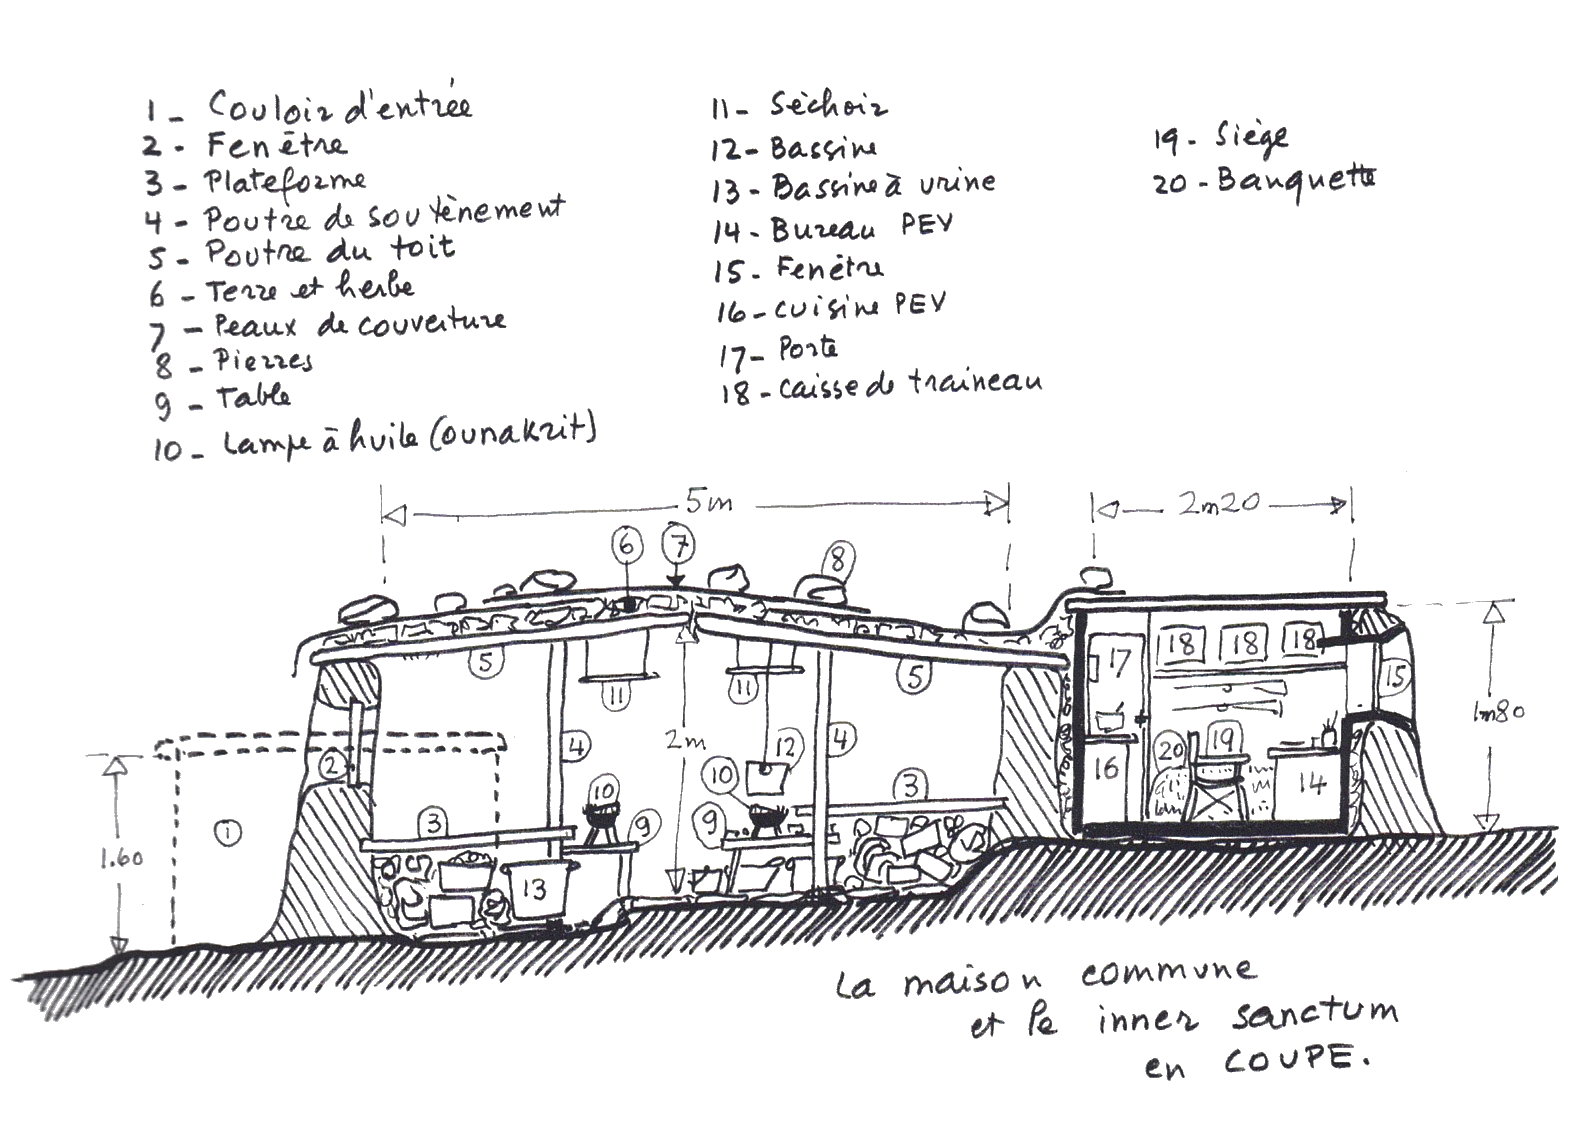 1 - Couloir d'entrée
2 - Fenêtre
3 - Plateforme
4 - Poutre de soutènement
5 - Poutre du toit
6 - Terre et herbe
7 - Peaux de couverture
8 - Pierres
9 - Table
10 - Lampe à huile (ounakrit)
11 - Séchoir
12 - Bassine
13 - Bassine à urine
14 - Bureau PEV
15 - Fenêtre
16 - Cuisine PEV
17 - Porte
18 - Caisse de traineau
19 - Siège
20 - Banquette
5m
2m20
6 7 8
5 11 11 5
17 18 18 18 15
1m80
2 4 2m 12 4
10 10 3 16 20 19 14
1 3 9 9
1.60
13
La maison commune
et le inner sanctum
en COUPE.